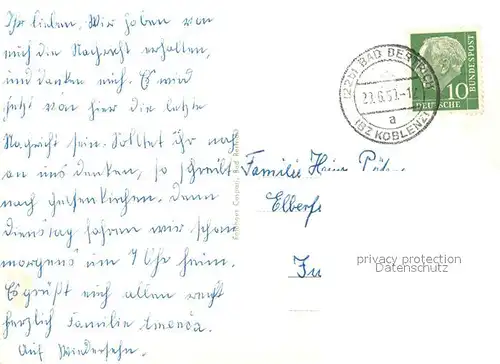 Ihr lieben. Wir haben von
euch die Nachricht erhallen,
und danken euch. Es wird
jetzt von hier die letzte
Nachricht sein. Solltet ihr noch
an uns denken, so schreibt
nach Gelsenkirchen. Denn
dienstag fahren wir schon
morgens um 7 Uhr heim.
Es grüßt euch allen recht
herzlich Familie
Auf Wiedersehn.
(22b) BAD BERTRICH
a
(BZ KOBLENZ)
10
DEUTSCHE
BUNDESPOST
Familie Heinz
Elberf
In
privacy protection
Datenschutz